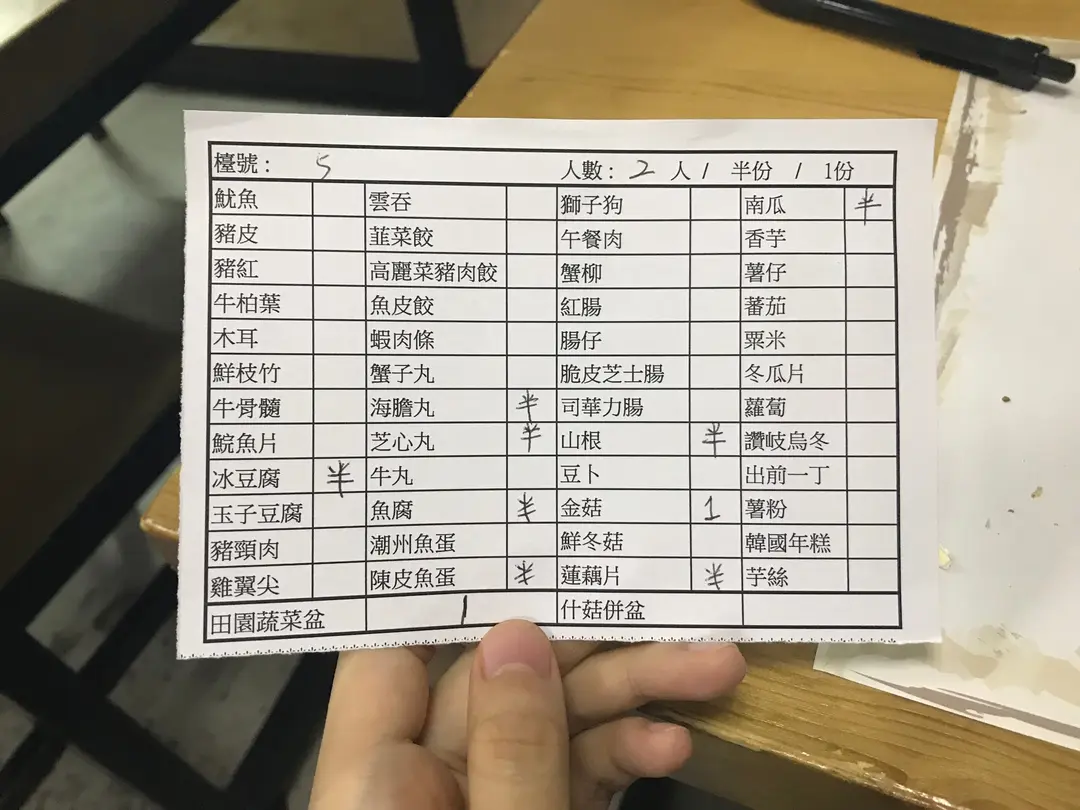 檯號： 5 人數：2 人 / 半份 / 1份
魷魚 雲吞 獅子狗 南瓜 半
豬皮 韮菜餃 午餐肉 香芋
豬紅 高麗菜豬肉餃 蟹柳 薯仔
牛柏葉 魚皮餃 紅腸 蕃茄
木耳 蝦肉條 腸仔 粟米
鮮枝竹 蟹子丸 脆皮芝士腸 冬瓜片
牛骨髓 海膽丸 半 司華力腸 蘿蔔
鯇魚片 芝心丸 半 山根 半 讚岐烏冬
冰豆腐 半 牛丸 豆卜 出前一丁
玉子豆腐 魚腐 半 金菇 1 薯粉
豬頸肉 潮州魚蛋 鮮冬菇 韓國年糕
雞翼尖 陳皮魚蛋 半 蓮藕片 半 芋絲
田園蔬菜盆 1 什菇併盆